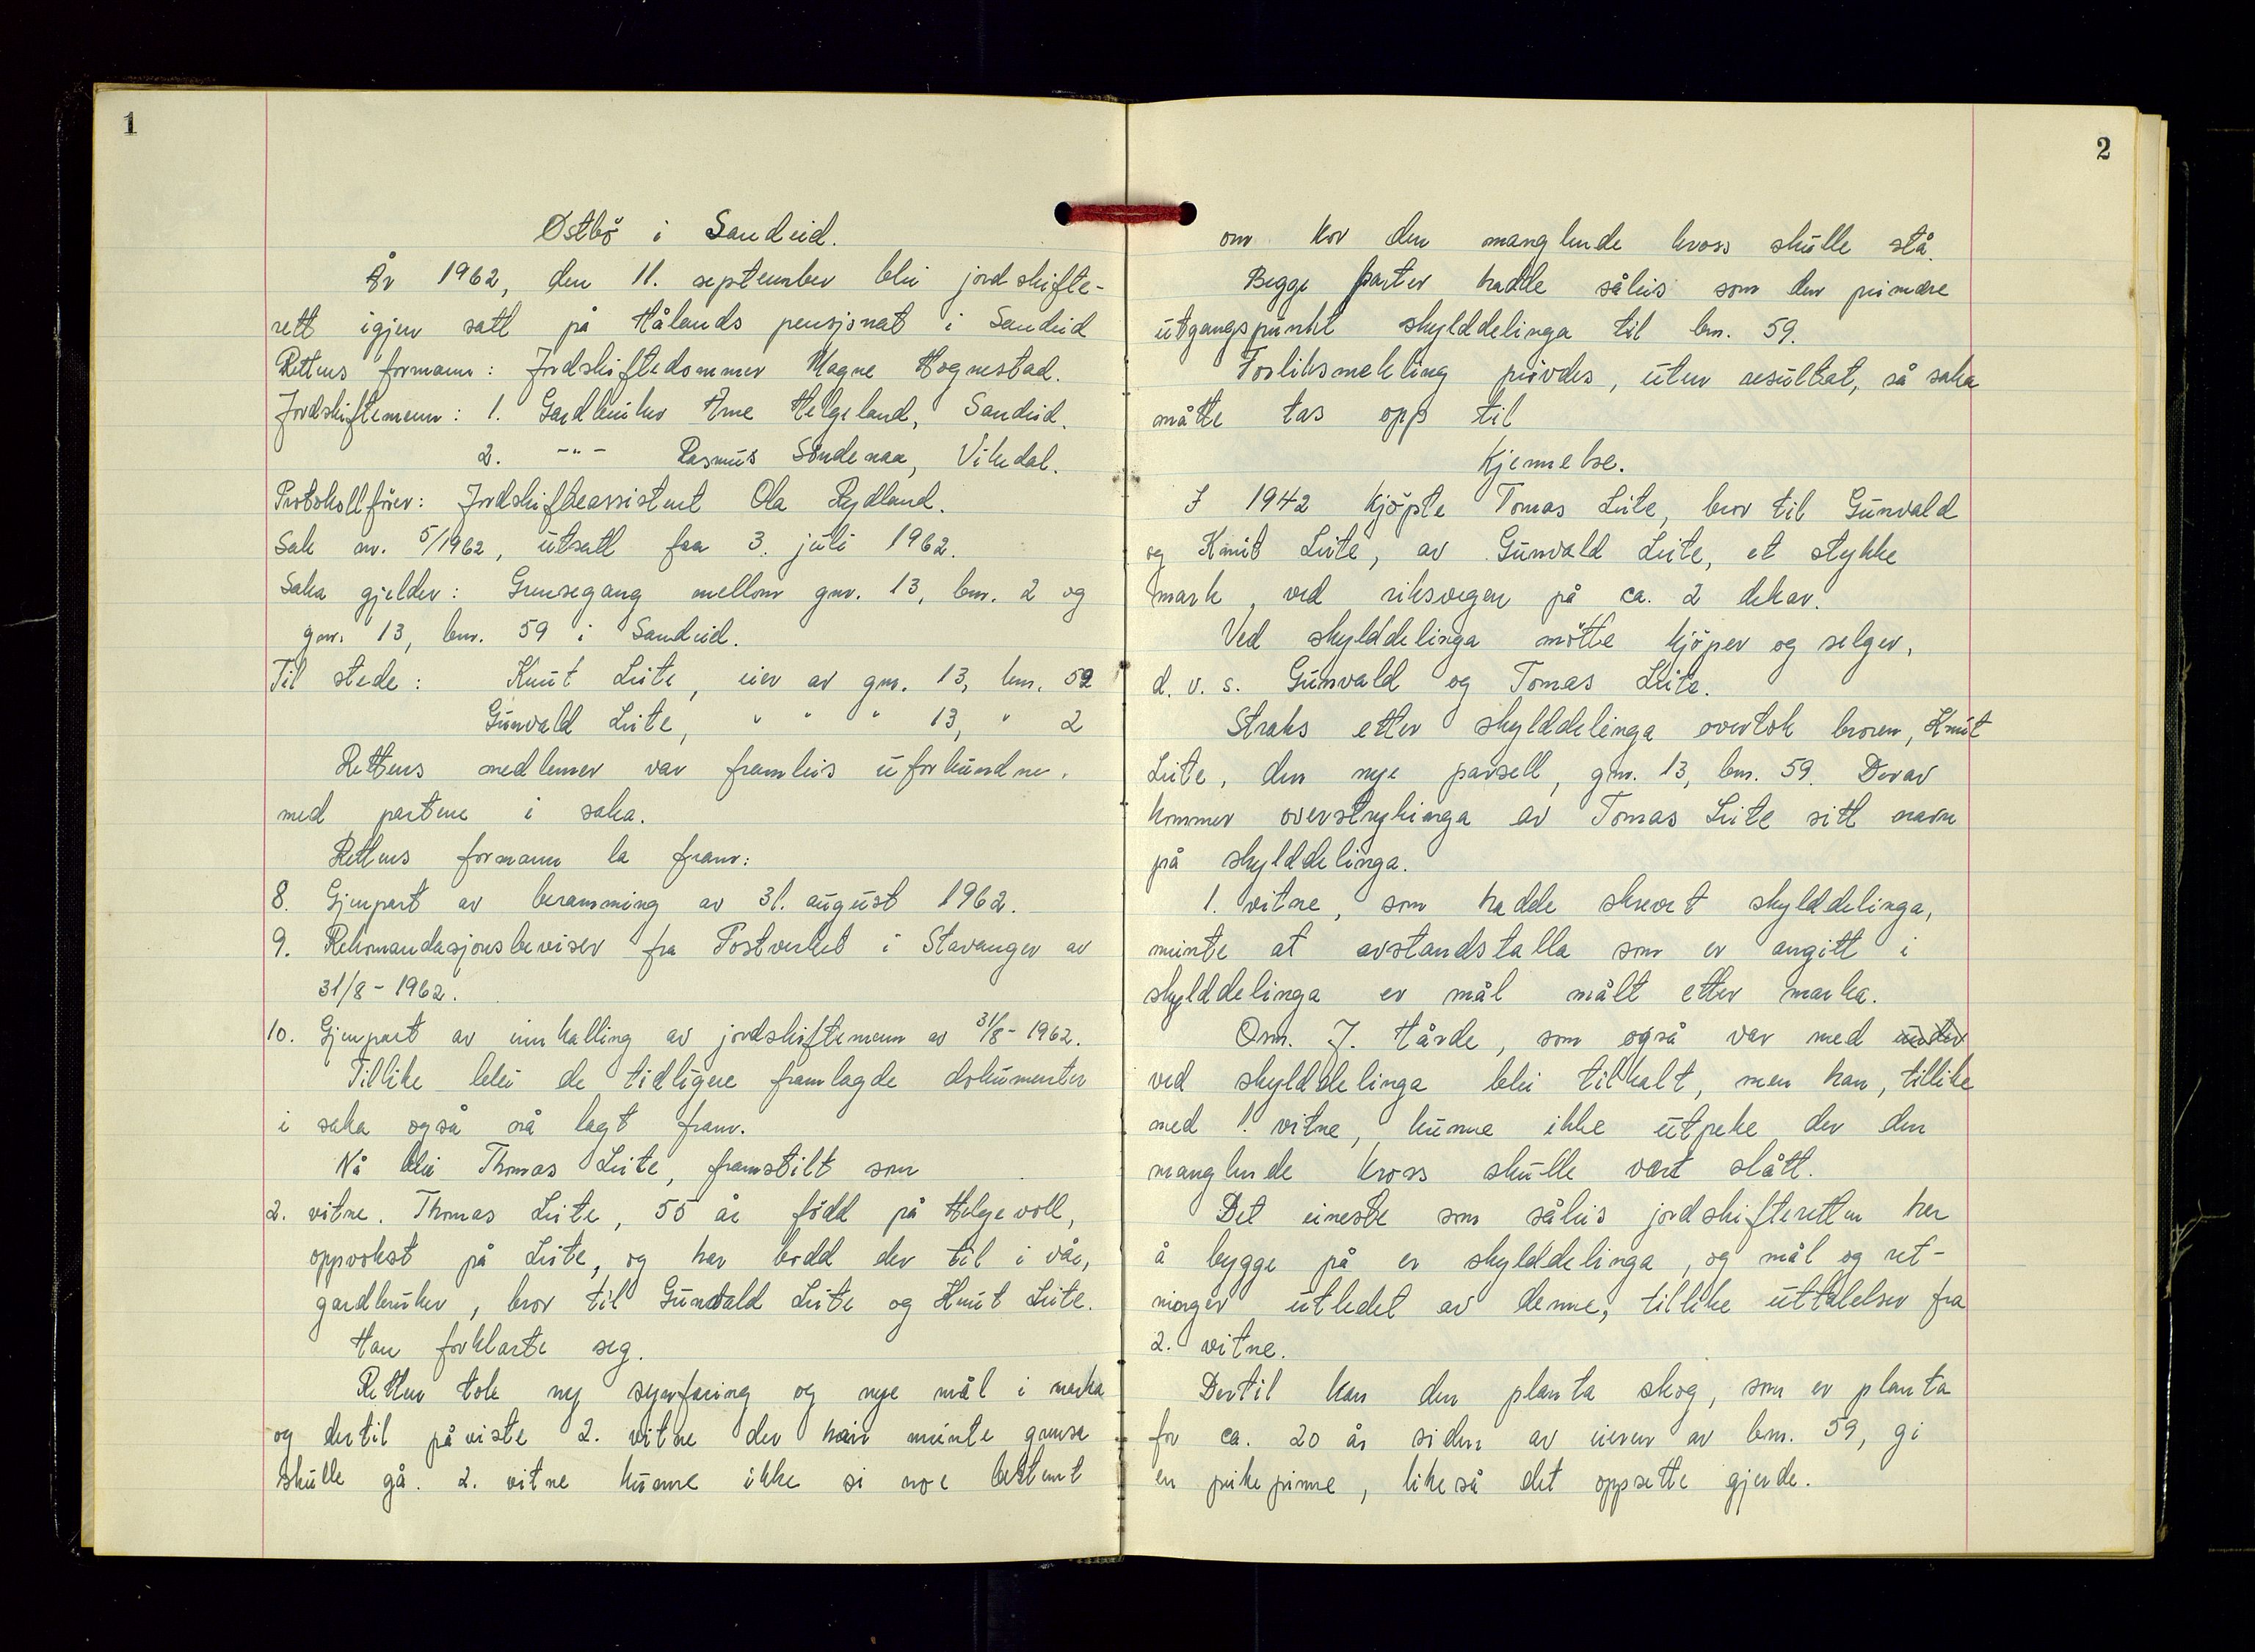 1
Østbö i Sandeid.
År 1962, den 11. september blei jordskifte-
rett igjen satt på Hålands pensjonat i Sandeid
Rettens formann: Jordskiftedommer Magne Hognestad.
Jordskiftemenn: 1. Gardbruker Arne Helgeland, Sandeid.
2. -"- Rasmus Söndenaa, Vikedal.
Protokollförer: Jordskifteassistent Ola Rydland.
Sak nr. 5/1962, utsatt fra 3. juli 1962.
Saka gjelder: Grensegang mellom gnr. 13, bnr. 2 og
gnr. 13, bnr. 59 i Sandeid.
Til stede: Knut Leite, eier av gnr. 13, bnr. 59
Gunvald Leite, " " " 13, " 2
Rettens medlemer var framleis uforbundne
med partene i saka.
Rettens formann la fram:
8. Gjenpart av beramming av 31. august 1962.
9. Rekomandasjonsbeviser fra Postverket i Stavanger av
31/8-1962.
10. Gjenpart av innkalling av jordskiftemenn av 31/8-1962.
Tillike blei de tidligere framlagde dokumenter
i saka også nå lagt fram.
Nå blei Thomas Leite, framstilt som
2. vitne. Thomas Leite, 55 år född på Helgevoll,
oppvokst på Leite, og har bodd der til i vår,
gardbruker, bror til Gunvald Leite og Knut Leite.
Han forklarte seg.
Retten tok ny synfaring og nye mål i marka
og dertil påviste 2. vitne der han meinte grense
skulle gå. 2. vitne kunne ikke si noe bestemt
2
om kor den manglende kross skulle stå.
Begge parter hadde såleis som den primære
utgangspunkt skylddelinga til bnr. 59.
Forliksmekling prövdes, uten resultat, så saka
måtte tas opp til
Kjennelse.
I 1942 kjöpte Tomas Leite, bror til Gunvald
og Knut Leite, av Gunvald Leite, et stykke
mark, ved riksvegen på ca. 2 dekar.
Ved skylddelinga mötte kjöper og selger,
d. v. s. Gunvald og Tomas Leite.
Straks etter skylddelinga overtok broren, Knut
Leite, den nye parsell, gnr. 13, bnr. 59. Derav
kommer overstrykinga av Tomas Leite sitt navn
på skylddelinga.
1. vitne, som hadde skrevet skylddelinga,
meinte at avstandstalla som er angitt i
skylddelinga er mål målt etter marka.
Om. J. Hårde, som også var med under
ved skylddelinga blei tilkalt, men han, tillike
med 1. vitne, kunne ikke utpeke der den
manglende kross skulle vært slått.
Det eineste som såleis jordskifteretten har
å bygge på er skylddelinga, og mål og ret-
ninger utledet av denne, tillike uttalelser fra
2. vitne.
Dertil kan den planta skog, som er planta
for ca. 20 år siden av eieren av bnr. 59, gi
en peikepinne, likeså det oppsette gjerde.